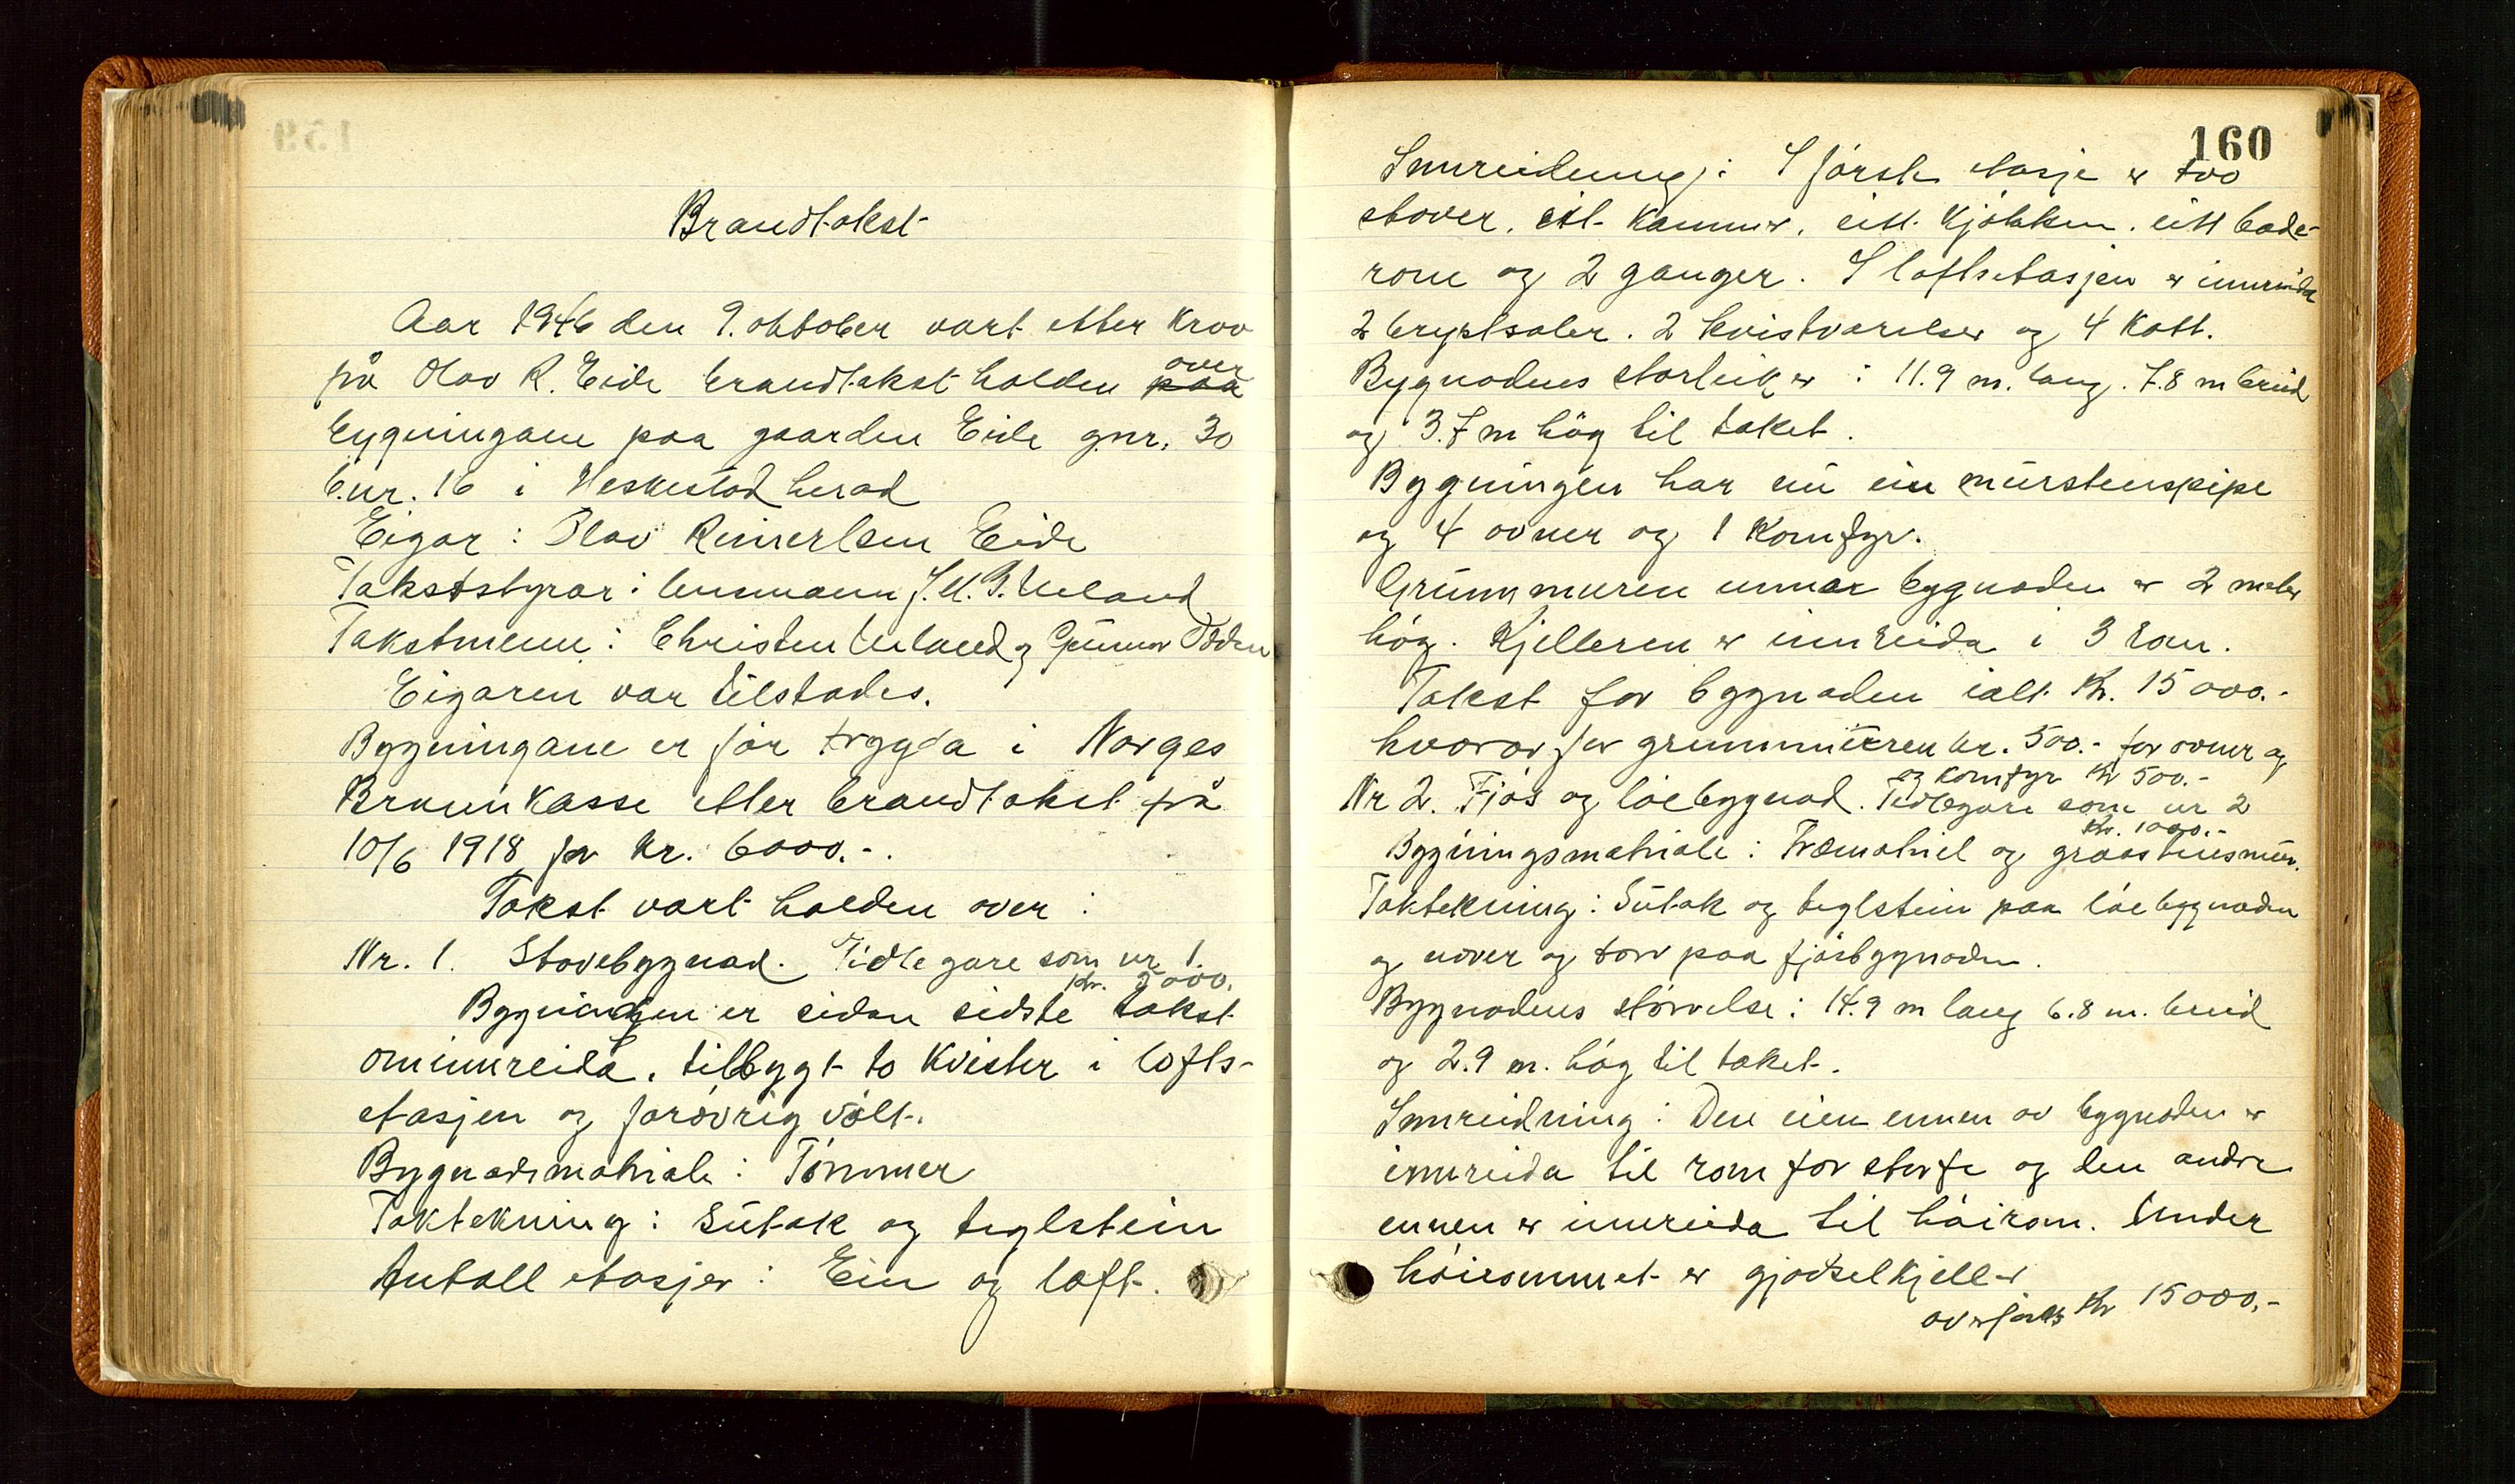 Brandtakst
Aar 1946 den 9. oktober vart etter krav
frå Olav R. Eide brandtakst halden paa over
bygningane paa gaarden Eide gnr. 30
b.nr. 16 i Heskestad herad
Eigar: Olav Reinertsen Eide
Takststyrar: lensmann J. U. Ueland
Takstmenn: Christen Ueland og Gunnar
Eigaren var tilstades.
Bygningane er før trygda i Norges
Brannkasse etter brandtakst frå
10/6 1918 for kr. 6000.-.
Takst vart halden over:
Nr. 1. Stovebygnad. Tidlegare som nr 1.
Kr. 5000.
Bygningen er sidan sidste takst
ominnreida, tilbygt to kvister i lofts-
etasjen og forøvrig vølt.
Bygnadsmatriale: Tømmer
Taktekning: Sutak og teglstein
Antall etasjer: Ein og loft.
160
Innreidning: I første etasje er tvo
stover, eit kammer, eitt kjøkken, eitt bade-
rom og 2 ganger. I loftsetasjen er innreida
2 brystsaler, 2 kvistværelser og 4 kott.
Bygnadens storleik er: 11.9 m. lang, 7.8 m breid
og 3.7 m høg til taket.
Bygningen har nu ein murstenspipe
og 4 ovner og 1 komfyr.
Grunnmuren unnar bygnaden er 2 meter
høg. Kjelleren er innreida i 3 rom.
Takst for bygnaden ialt Kr. 15000.-
hvorav for grunnmuren kr. 500.- for ovner og
og komfyr kr 500.-
Nr 2. Fjøs og løebygnad. Tidlegare som nr 2
Kr. 1000.-
Bygningsmatriale: Træmatriel og graastensmur.
Taktekning: Sutak og teglstein paa løebygnaden
og never og torv paa fjøsbygnaden.
Bygnadens størrelse: 14.9 m lang 6.8 m. breid
og 2.9 m. høg til taket.
Innreidning: Den eien ennen av bygnaden er
innreida til rom for storfe og den andre
ennen er innreida til høirom. Under
høirommet er gjødselkjeller
overføres Kr 15000.-